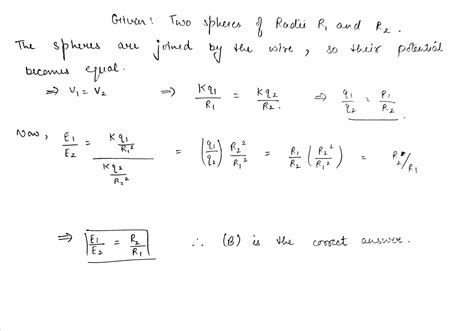 Given: Two spheres of Radii R₁ and R₂.
The spheres are joined by the wire, so their potential
becomes equal.
⇒ V₁ = V₂ ⇒ Kq₁/R₁ = Kq₂/R₂. ⇒ q₁/q₂ = R₁/R₂
Now, E₁/E₂ = (Kq₁/R₁²)/(Kq₂/R₂²) = (q₁/q₂) R₂²/R₁² = R₁/R₂ (R₂²/R₁²) = R₂/R₁
⇒ E₁/E₂ = R₂/R₁ ∴ (B) is the correct answer.